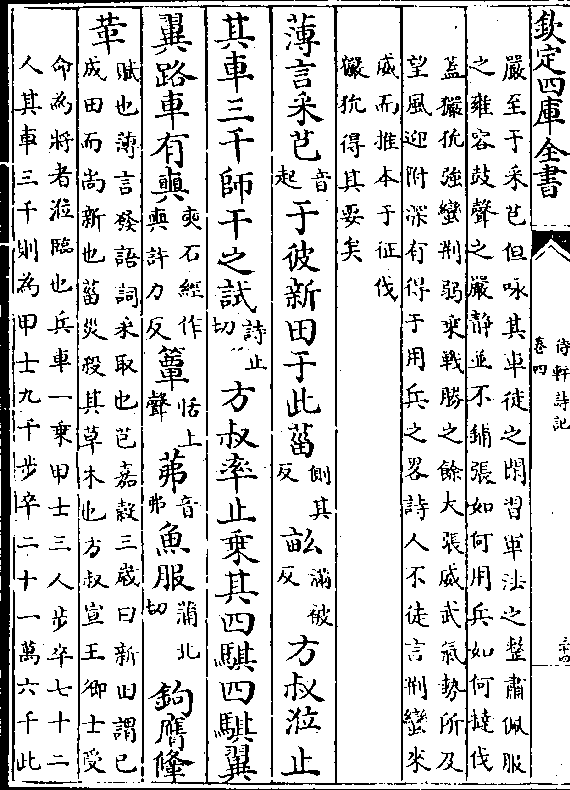 欽定四庫全書
待軒詩記
卷四
嚴至于采芑但咏其車徒之閑習軍法之整肅佩服
之雍容鼓聲之嚴静並不鋪張如何用兵如何撻伐
蓋玁狁強蠻荆弱乘戰勝之餘大張威武氣勢所及
望風迎附深有得于用兵之畧詩人不徒言荆蠻来
威而推本于征伐
玁狁得其要矣
薄言采芑音起于彼新田于此菑側其反畝滿彼反方叔涖止
其車三千師干之試詩止切方叔率止乘其四騏四騏翼
翼路車有奭奭石經作奭許力反簟恬上聲茀音弗魚服蒲北切鉤膺鞗
革賦也薄言發語詞采取也芑嘉穀三歲曰新田謂已
成田而尚新也菑災殺其草木也方叔宣王卿士受
命為將者涖臨也兵車一乘甲士三人步卒七十二
人其車三千則為甲士九千步卒二十一萬六千此